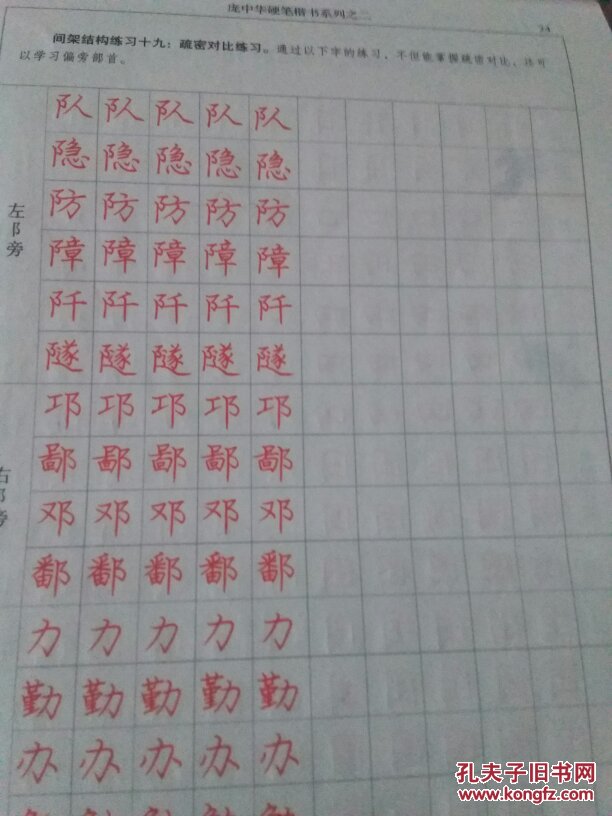 庞中华硬笔楷书系列之二
24
间架结构练习十九：疏密对比练习。通过以下字的练习，不但能掌握疏密对比，还可
以学习偏旁部首。
左阝旁
队 队 队 队 队
隐 隐 隐 隐 隐
防 防 防 防 防
障 障 障 障 障
阡 阡 阡 阡 阡
隧 隧 隧 隧 隧
右阝旁
邛 邛 邛 邛 邛
鄙 鄙 鄙 鄙 鄙
邓 邓 邓 邓 邓
鄱 鄱 鄱 鄱 鄱
力 力 力 力 力
勤 勤 勤 勤 勤
办 办 办 办 办
孔夫子旧书网
www.kongfz.com